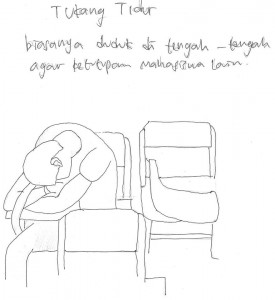 Tukang Tidur
biasanya duduk di tengah-tengah
agar tertutupan mahasiswa lain.